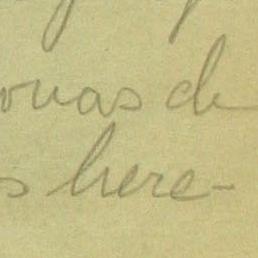 onas de
s here-